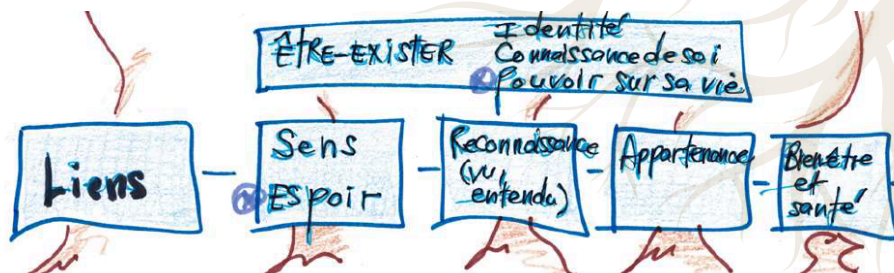 ÊTRE-EXISTER
Identité
Connaissance de soi
Pouvoir sur sa vie
Liens
Sens
ESpoir
Reconnaissance
(vu,
entendu)
Appartenance
Bien être
et
santé